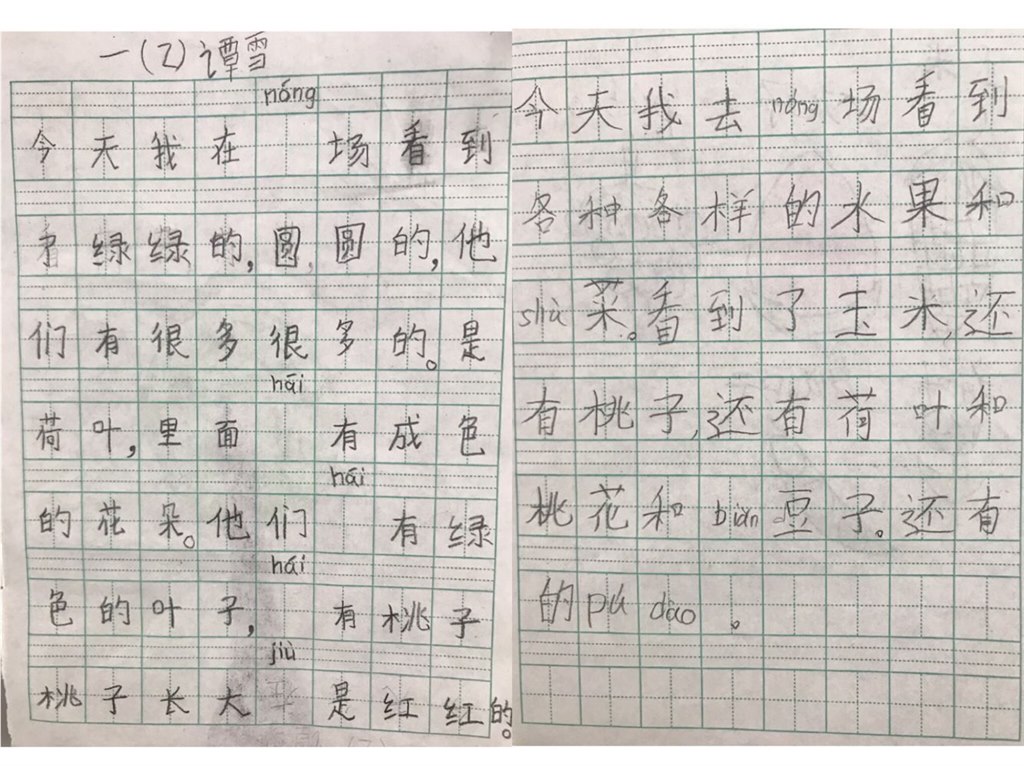 一(乙)谭雪
nóng
今天我在 场看到
绿绿的,圆圆的,他
们有很多很多的。是
hái
荷叶,里面 有成色
hái
的花朵。他们 有绿
hái
色的叶子, 有桃子
jiù
桃子长大 是红红的。
今天我去nóng场看到
各种各样的水果和
shū菜。看到了玉米,还
有桃子,还有荷叶和
桃花和biǎn豆子。还有
的pú dao。